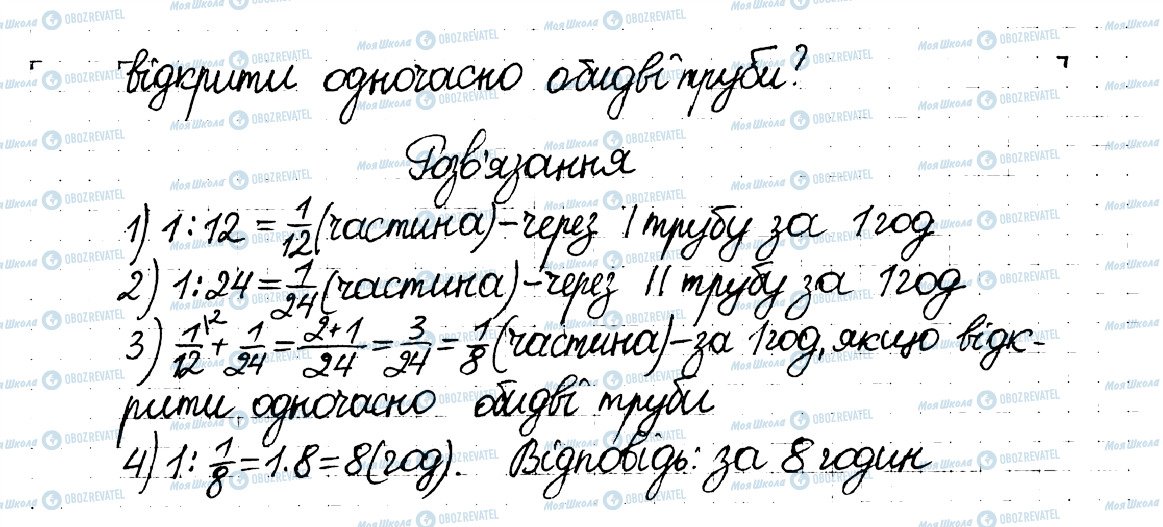 відкрити одночасно обидві труби?
Розв'язання
1) 1:12 = 1/12 (частина) - через I трубу за 1 год
2) 1:24 = 1/24 (частина) - через II трубу за 1 год
3) 1/12 \2 + 1/24 = 2+1/24 = 3/24 = 1/8 (частина) - за 1 год, якщо відк-
рити одночасно обидві труби
4) 1: 1/8 = 1·8 = 8 (год). Відповідь: за 8 годин